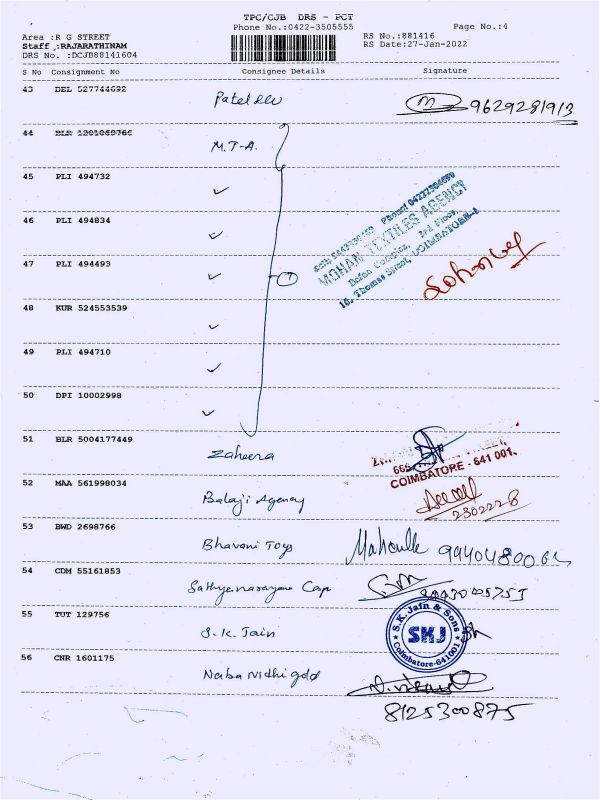 TPC/CJB DRS - PCT
Phone No.:0422-3505555
Page No.:4
Area :R G STREET
Staff :RAJARATHINAM
DRS No. :DCJB88141604
RS No.:881416
RS Date:27-Jan-2022
S No Consignment No Consignee Details Signature
43 DEL 527744692
9629281913
44 BLR 1201869766 M.T-A.
45 PLI 494732 ✓
46 PLI 494834 ✓
47 PLI 494493 ✓
MOHAN TEXTILES AGENCY
3rd Floor,
16, Thomas Street, COIMBATORE-1
48 KUR 524553539 ✓
49 PLI 494710 ✓
50 DPI 10002998 ✓
51 BLR 5004177449 Zaheera
COIMBATORE - 641 001.
52 MAA 561998034 Balaji Agency
2302228
53 BWD 2698766 Bhavani Toys
54 CDM 55161853 Sathyanarayana Cap
55 TUT 129756 S.K. Jain
S.K. Jain & Sons
SKJ
Coimbatore-641001
56 CNR 1601175
8125300875